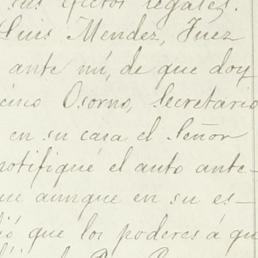 sus efectos legales.
Luis Mendez, Juez
ante mí, de que doy
Osorno, Secretario
en su casa el Señor
notifiqué el auto ante-
que aunque en su es-
que los poderes á